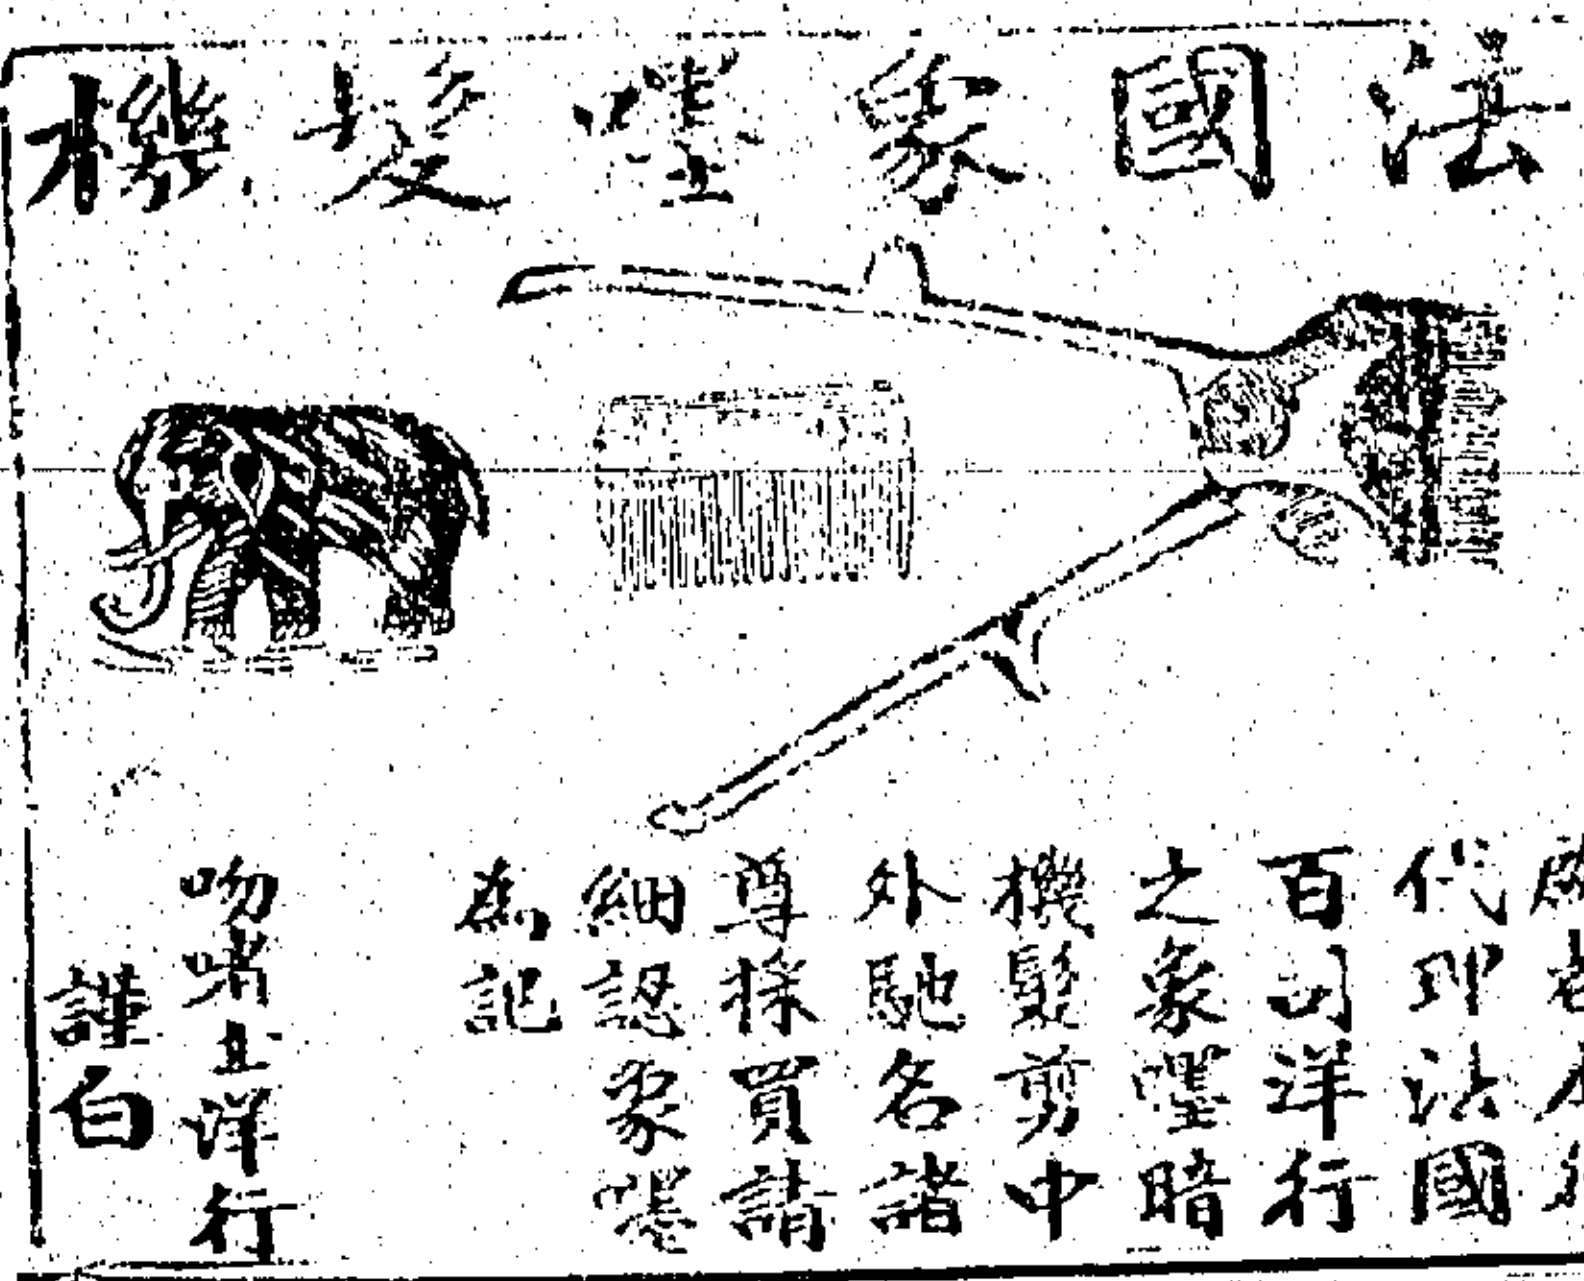 法國象嚜髮機
啟者本行
代 法國
百司洋行
之象嚜暗
機髮剪中
外馳名諸
尊採買請
細認象嚜
為記
吻啫 洋行
謹白